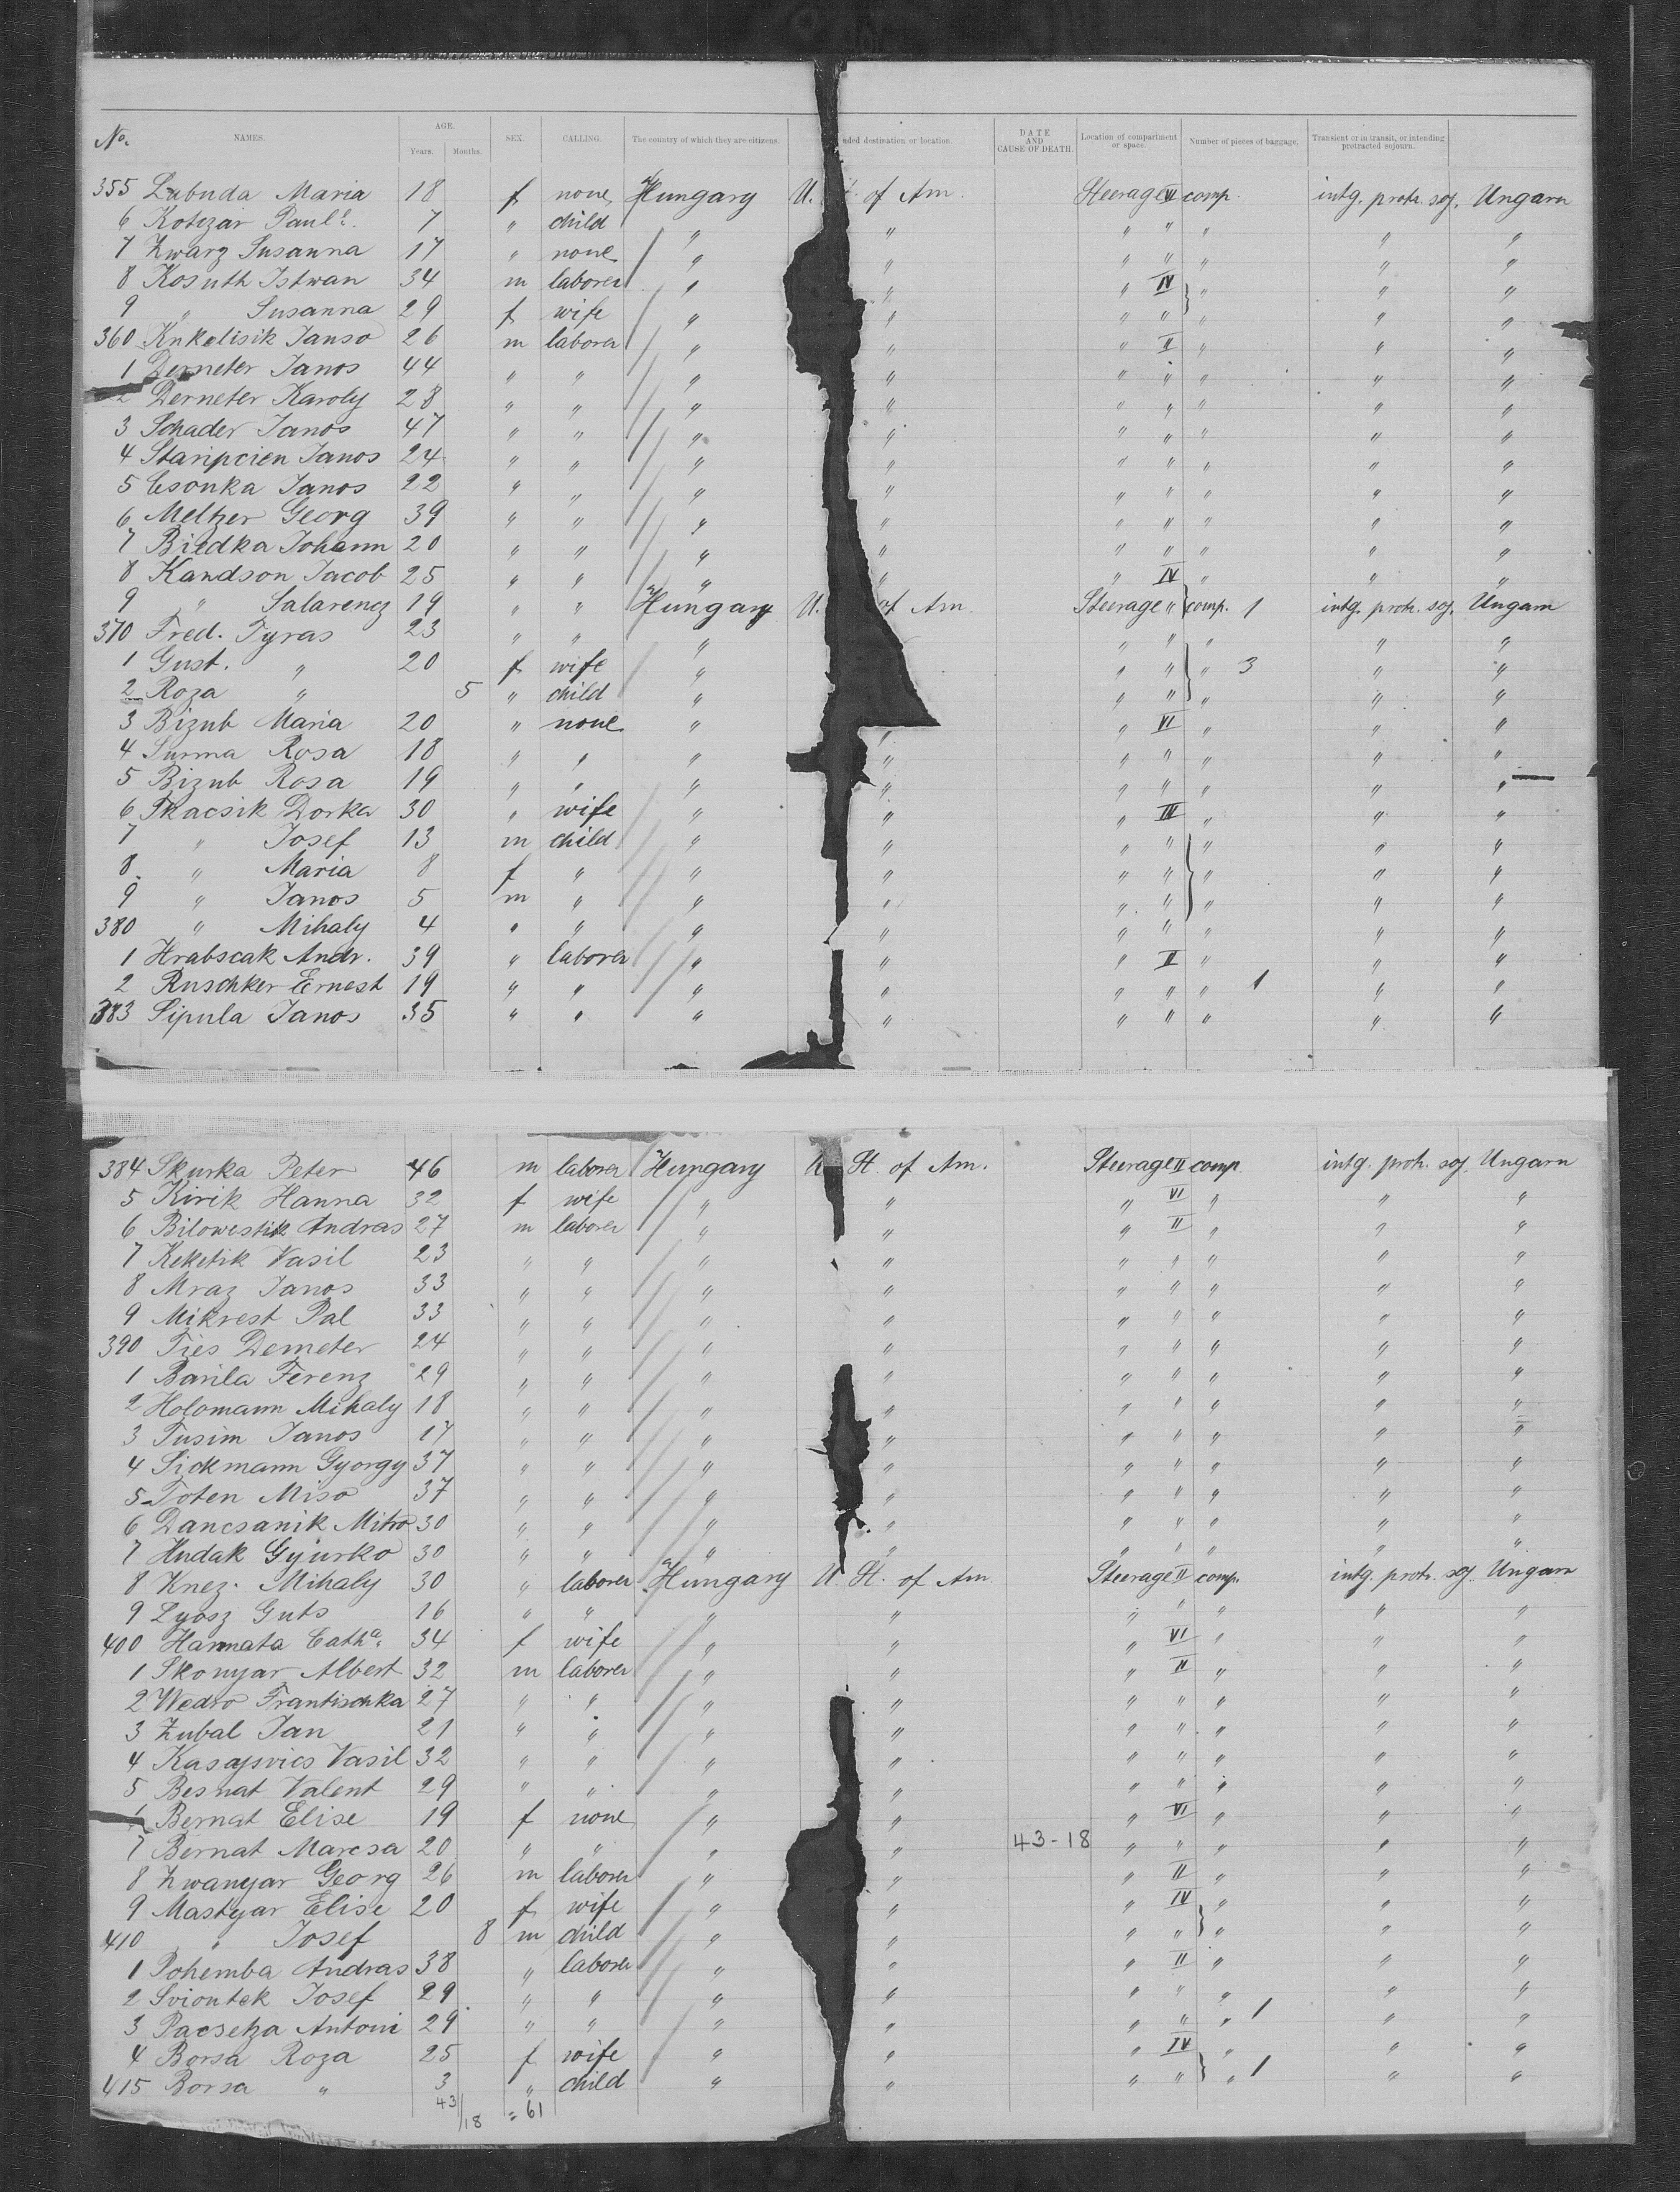 No. NAMES. AGE. Years. Months. SEX. CALLING. The country of which they are citizens. nded destination or location. DATE AND CAUSE OF DEATH. Location of compartment or space. Number of pieces of baggage. Transient or in transit, or intending protracted sojourn.
355 Labuda Maria 18 f none Hungary U. of Am. Steerage VI comp. intg. protr. soj. Ungarn
6 Kotczar Paul 7 " child " " " " " " "
7 Zwarz Susanna 17 " none " " " " " " "
8 Kosuth Istwan 34 m laborer " " " IV " " "
9 " Susanna 29 f wife " " " " " " "
360 Knkelisik Janso 26 m laborer " " " II " " "
1 Demeter Janos 44 " " " " " " " " "
2 Demeter Karoly 28 " " " " " " " " "
3 Schader Janos 47 " " " " " " " " "
4 Staripcien Janos 24 " " " " " " " " "
5 Csonka Janos 22 " " " " " " " " "
6 Meltzer Georg 39 " " " " " " " " "
7 Biedka Johann 20 " " " " " " " " "
8 Kandson Jacob 25 " " " " " IV " " "
9 " Salarencz 19 " " Hungary U. of Am. Steerage " comp. 1 intg. protr. soj. Ungarn
370 Fred. Tyras 23 " " " " " " " " "
1 Gust. " 20 f wife " " " " " 3 " "
2 Roza " 5 " child " " " " " " "
3 Bizub Maria 20 " none " " " VI " " "
4 Surma Rosa 18 " " " " " " " " "
5 Bizub Rosa 19 " " " " " " " " "
6 Tkacsik Dorka 30 " wife " " " IV " " "
7 " Josef 13 m child " " " " " " "
8 " Maria 8 f " " " " " " " "
9 " Janos 5 m " " " " " " " "
380 " Mihaly 4 " " " " " " " " "
1 Hrabscak Andr. 39 " laborer " " " II " " "
2 Ruschker Ernest 19 " " " " " " " 1 " "
383 Sipula Janos 35 " " " " " " " " "
384 Skurka Peter 46 m laborer Hungary U St. of Am. Steerage II comp. intg. protr. soj. Ungarn
5 Kirik Hanna 32 f wife " " " VI " " "
6 Bilowestik Andras 27 m laborer " " " II " " "
7 Keketik Vasil 23 " " " " " " " " "
8 Mraz Janos 33 " " " " " " " " "
9 Mikrest Pal 33 " " " " " " " " "
390 Ties Demeter 24 " " " " " " " " "
1 Barila Ferenz 29 " " " " " " " " "
2 Holomann Mihaly 18 " " " " " " " " "
3 Tusim Janos 17 " " " " " " " " "
4 Sickmann Gyorgy 37 " " " " " " " " "
5 Toten Miso 37 " " " " " " " " "
6 Dancsanik Mitro 30 " " " " " " " " "
7 Hudak Gyurko 30 " " " " " " " " "
8 Knez. Mihaly 30 " laborer Hungary U. St. of Am Steerage II comp. intg. protr. soj. Ungarn
9 Lyosz Guts 16 " " " " " " " " "
400 Hannata Catha. 34 f wife " " " VI " " "
1 Skonyar Albert 32 m laborer " " " II " " "
2 Wedro Frantischka 27 " " " " " " " " "
3 Zubal Jan 21 " " " " " " " " "
4 Kasajovics Vasil 32 " " " " " " " " "
5 Besnat Valent 29 " " " " " " " " "
Bernat Elise 19 f none " " " VI " " "
7 Bernat Marcsa 20 " " " " 43-18 " " " " "
8 Zwanyar Georg 26 m laborer " " " II " " "
9 Mastyar Elise 20 f wife " " " IV " " "
410 " Josef 8 m child " " " " " " "
1 Pohemba Andras 38 " laborer " " " II " " "
2 Sviontek Josef 29 " " " " " " " " "
3 Pacsetza Antoni 29 " " " " " " " 1 " "
4 Borsa Roza 25 f wife " " " IV " " "
415 Borsa " 3 " child " " " " " 1 " "
43/18 = 61